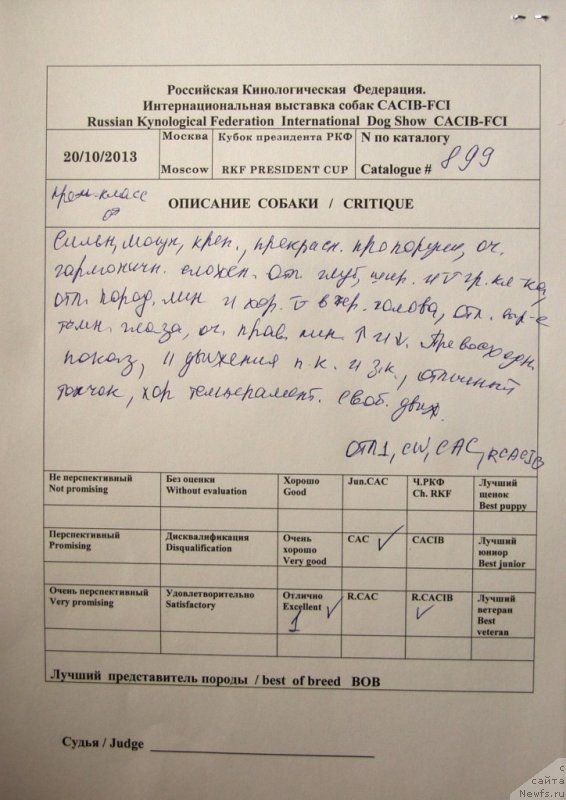 Российская Кинологическая Федерация.
Интернациональная выставка собак CACIB-FCI
Russian Kynological Federation International Dog Show CACIB-FCI
20/10/2013
Москва
Moscow
Кубок президента РКФ
RKF PRESIDENT CUP
N по каталогу
Catalogue # 899
класс
ОПИСАНИЕ СОБАКИ / CRITIQUE
Сильн, мощн, креп., прекрасн. пропорции, оч.
гармоничн. сложен. Отл. глуб, шир. и V гр. кл-ка,
отл. пород. лин и хор. V в чер. голова, отл.
темн. глаза, оч. прав. лин. Превосходн.
показ, II движения п.к. и з.к., отличный
толчок, хор темперамент. Своб. движ.
ОТЛ 1, CW, CAC, RCACIB
Не перспективный
Not promising
Без оценки
Without evaluation
Хорошо
Good
Jun.CAC
Ч.РКФ
Ch. RKF
Лучший
щенок
Best puppy
Перспективный
Promising
Дисквалификация
Disqualification
Очень
хорошо
Very good
CAC
CACIB
Лучший
юниор
Best junior
Очень перспективный
Very promising
Удовлетворительно
Satisfactory
Отлично
Excellent
1
R.CAC
R.CACIB
Лучший
ветеран
Best
veteran
Лучший представитель породы / best of breed BOB
Судья / Judge
с
сайта
Newfs.ru